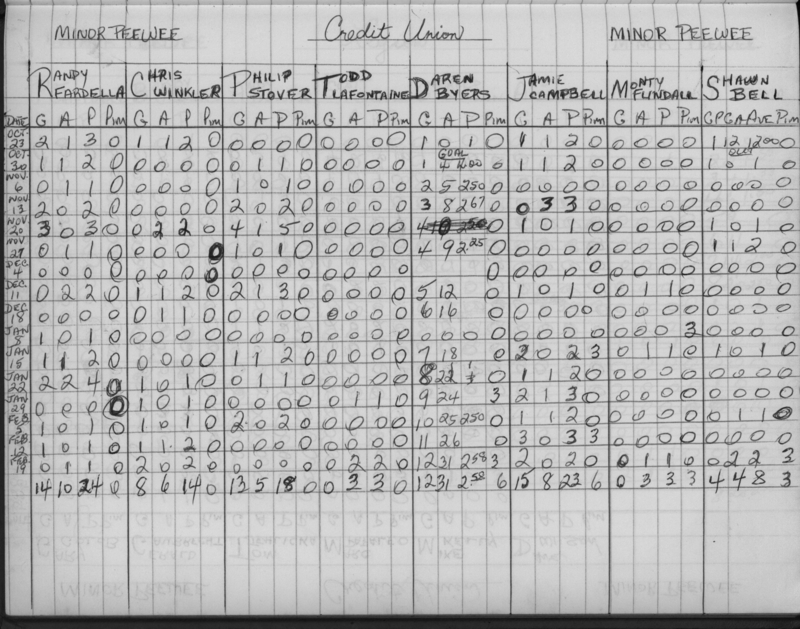 MINOR PEEWEE Credit Union MINOR PEEWEE
RANDY FARDELLA CHRIS WINKLER PHILIP STOVER TODD LAFONTAINE DAREN BYERS JAMIE CAMPBELL MONTY FUNDALL SHAWN BELL
DATE G A P Pim G A P Pim G A P Pim G A P Pim G A P Pim G A P Pim G A P Pim GP GA AVE Pim
OCT 23 2 1 3 0 1 1 2 0 0 0 0 0 0 0 0 0 1 0 1 0 1 1 2 0 0 0 0 0 1 12 1200 0
OCT 30 1 1 2 0 0 0 0 0 0 1 1 0 0 0 0 0 GOAL 1 4 4.00 0 1 1 2 0 0 0 0 0 1 0 1 0
NOV 6 0 1 1 0 0 0 0 0 1 0 1 0 0 0 0 0 2 5 250 0 0 0 0 0 0 0 0 0 0 0 0 0
NOV 13 2 0 2 0 0 0 0 0 2 0 2 0 0 0 0 0 3 8 267 0 0 3 3 0 0 0 0 0 0 0 0 0
NOV 20 3 0 3 0 0 2 2 0 4 1 5 0 0 0 0 0 0 1 0 1 0 0 0 0 0 1 0 1 0
NOV 27 0 1 1 0 0 0 0 0 1 0 1 0 0 0 0 0 4 9 2.25 0 0 0 0 0 0 0 0 0 1 1 2 0
DEC 4 0 0 0 0 0 0 0 0 0 0 0 0 0 0 0 0 0 0 0 0 0 0 0 0 0 0 0 0 0
DEC 11 0 2 2 0 1 1 2 0 2 1 3 0 0 0 0 0 5 12 0 1 0 1 0 0 1 1 0 0 0 0 0
DEC 18 0 0 0 0 0 1 1 0 0 0 0 0 0 0 0 0 6 16 0 0 0 0 0 0 0 0 0 0 0 0 0
JAN 8 1 0 1 0 0 0 0 0 0 0 0 0 0 0 0 0 0 0 0 0 0 0 0 0 0 0 0 3 0 0 0 0
JAN 15 1 1 2 0 0 0 0 0 1 1 2 0 0 0 0 0 7 18 0 2 0 2 3 0 1 1 0 1 0 1 0
JAN 22 2 2 4 0 1 0 1 0 0 1 1 0 0 0 0 0 8 22 0 1 1 2 0 0 0 0 0 0 0 0 0
JAN 29 0 0 0 0 1 0 1 0 0 0 0 0 0 1 1 0 9 24 3 2 1 3 0 0 0 0 0 0 0 0 0
FEB 5 1 0 1 0 1 0 1 0 2 0 2 0 0 0 0 0 10 25 250 0 1 1 2 0 0 0 0 0 0 1 1 0
FEB 12 1 0 1 0 1 1 2 0 0 0 0 0 0 0 0 0 11 26 0 3 0 3 3 0 0 0 0 0 0 0 0
FEB 19 0 1 1 0 2 0 2 0 0 0 0 0 0 2 2 0 12 31 2.58 3 2 0 2 0 0 1 1 0 0 2 2 3
14 10 24 0 8 6 14 0 13 5 18 0 0 3 3 0 12 31 2.58 6 15 8 23 6 0 3 3 3 4 4 8 3